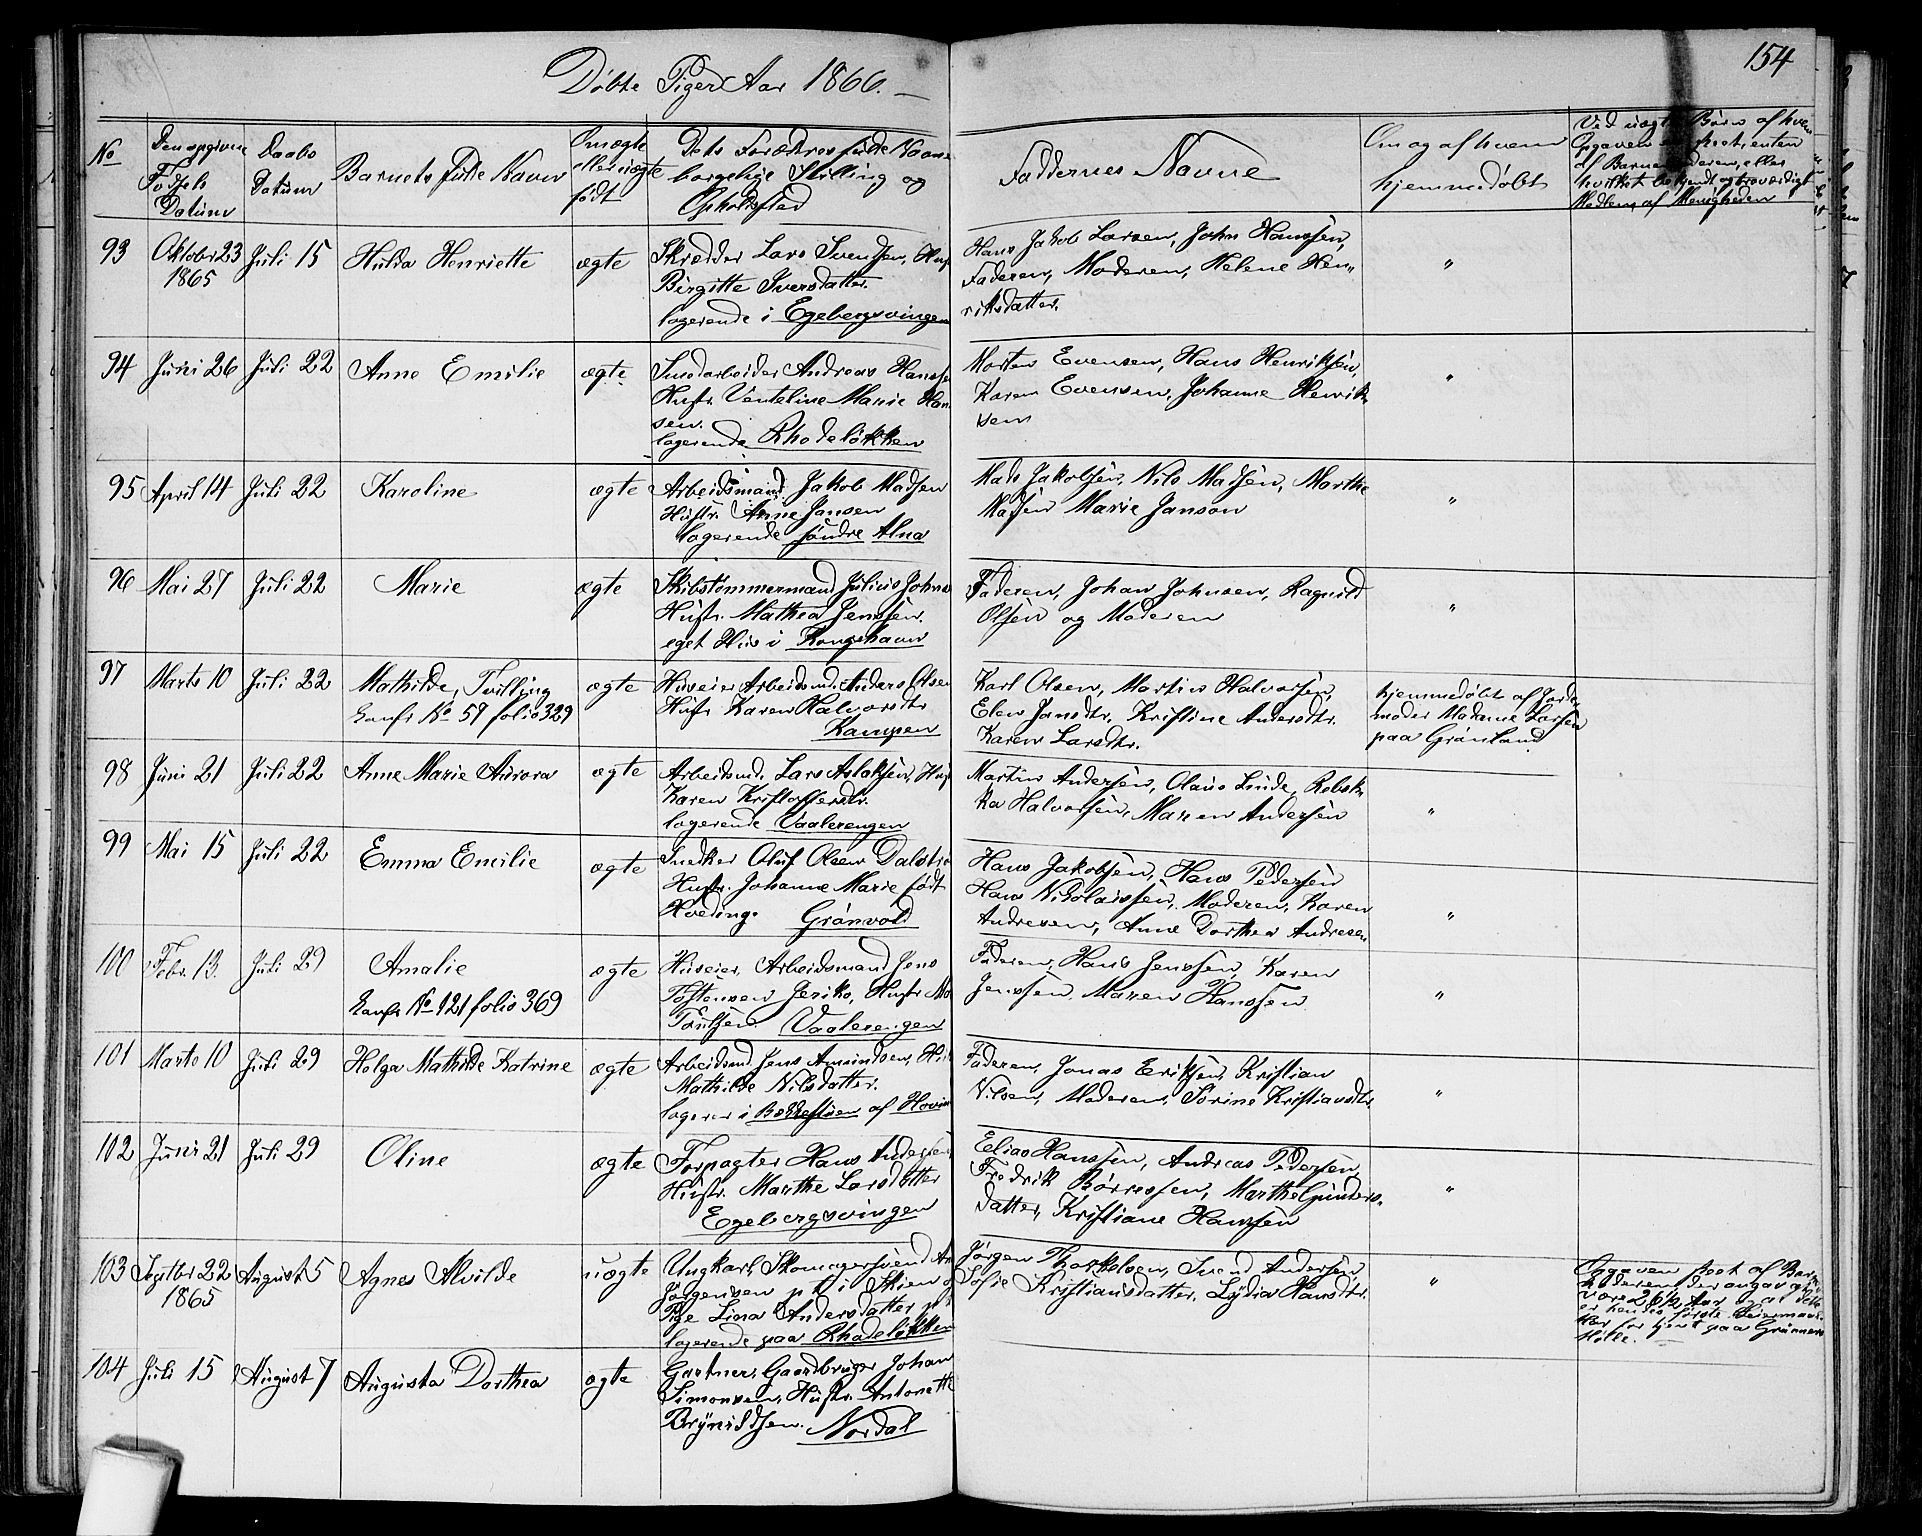 154
Döbte Piger Aar 1866. —
No
Den opgivne
Födsels
Datum
Daabs
Datum
Barnets fulde Navn
Om ægte
eller uægte
födt
Dets Forældres fulde Navne
borgelige Stilling og
Opholdsted
Faddernes Navne
Om og af hvem
hjemmedöbt
Ved uægte Börn af hvem
Opgaven er skeet, enten
af Barnefaderen, eller
hvilket bekjendt og troværdigt
Medlem af Menigheden
93
Oktober 23
1865
Juli 15
Hulda Henriette
ægte
Skrædder Lars Svensen, Huf
Birgitte Iversdatter.
logerende i Egebergsvingen
Hans Jakob Larsen, John Hanssen,
Faderen, Moderen, Helene Hen"
riksdatter.
"
94
Juni 26
Juli 22
Anne Emilie
ægte
Andreas Hanssen
Hustr. Venteline Marie Han
sen.
logerende Rhodelökken
Morten Evensen, Hans Henriksen,
Karen Evensen, Johanne Henrik
sen
"
95
April 14
Juli 22
Karoline
ægte
Arbeidsmand Jakob Madsen
Hustr. Anne Jansen
logerende söndre Alna
Mads Jakobsen, Nils Madsen, Marthe
Madsen Marie Janson
"
96
Mai 27
Juli 22
Marie
ægte
Skibstömmermand Julius Johns
Hustr. Mathea Jenssen.
eget Hus i Kongshavn
Faderen, Johan Johnsen, Ragnild
Olsen og Moderen
"
97
Marts 10
Juli 22
Mathilde, Tvilling
Konfr No 59 folio 329
ægte
Huseier Arbeidsmd. Anders Olsen
Hustr Karen Halvorsdtr
Kampen
Karl Olsen, Martin Halvorsen,
Elen Jansdtr. Kristine Andersdtr.
Karen Larsdtr.
hjemmedöbt af Jorde
moder Madame Larsen
paa Grönland
98
Juni 21
Juli 22
Anne Marie Aurora
ægte
Arbeidsmd. Lars Aslaksen, Huf
Karen Kristoffersdtr.
logerende Vaalerengen
Martin Andersen, Olaus Linde, Rebek
ka Halvorsen, Maren Andersen
"
99
Mai 15
Juli 22
Emma Emilie
ægte
Snedker Oluf Olsen Dalströ
Hustr. Johanne Marie födt
Hveding. Grönvold
Hans Jakobsen, Hans Pedersen
Hans Nikolaissen, Moderen, Karen
Andresen, Anne Dorthea Andresen
"
100
Febr. 13.
Juli 29
Amalie
Konfr No 121 folio 369
ægte
Huseier, Arbeidsmand Jens
Tostensen Jeriko, Hustr Ma
Poulsen Vaalerengen
Faderen, Hans Jenssen, Karen
Jenssen, Maren Hanssen
"
101
Marts 10
Juli 29
Helga Mathilde Katrine
ægte
Arbeidsmd Jens Amundsen, Hu
Mathilde Nilsdatter.
logerer i af Hovin
Faderen, Jonas Eriksen, Kristian
Nilsen, Moderen, Sörine Kristiansdtr.
"
102
Juni 21
Juli 29
Oline
ægte
Forpagter Hans Andersen,
Hustr. Marthe Larsdatter
Egebergsvingen
Elias Hanssen, Andreas Pedersen,
Fredrik Börresen, Marthe Gunders-
datter, Kristiane Hanssen
"
103
Septbr 22
1865
August 5
Agnes Alvilde
uægte
Ungkarl, Skomagersvend An
Jörgensen pt i Skien o
Pige Lina Andersdatter pt
logerende paa Rhodelökken
Jörgen Thorkelsen, Svend Andersen
Sofie Kristiansdatter, Lydia Hansdtr.
"
Opgaven skeet af Barne
Moderen, der angav at
være 26½ Aar og at dette
er hendes förste Leiermaal.
Har för tjent paa Grünners
Mölle.
104
Juli 15
August 7
Augusta Dorthea
ægte
Gartner, Gaardbruger Johan
Simonsen, Hustr. Antonette
Brynildsen. Nordal